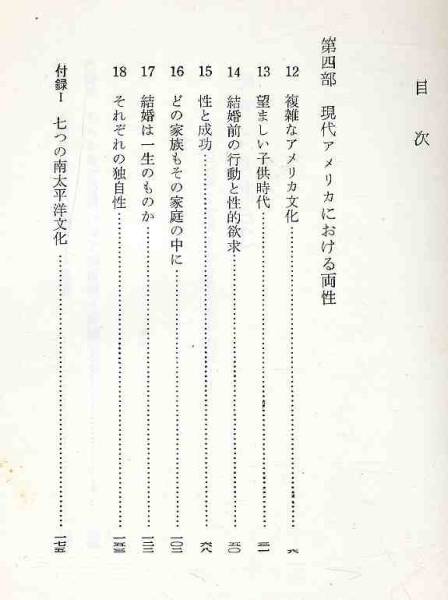 目次
第四部 現代アメリカにおける両性
12 複雑なアメリカ文化……六
13 望ましい子供時代……三一
14 結婚前の行動と性的欲求……五〇
15 性と成功……六八
16 どの家族もその家庭の中に……一〇二
17 結婚は一生のものか……一二二
18 それぞれの独自性……一五三
付録Ⅰ 七つの南太平洋文化……一七五